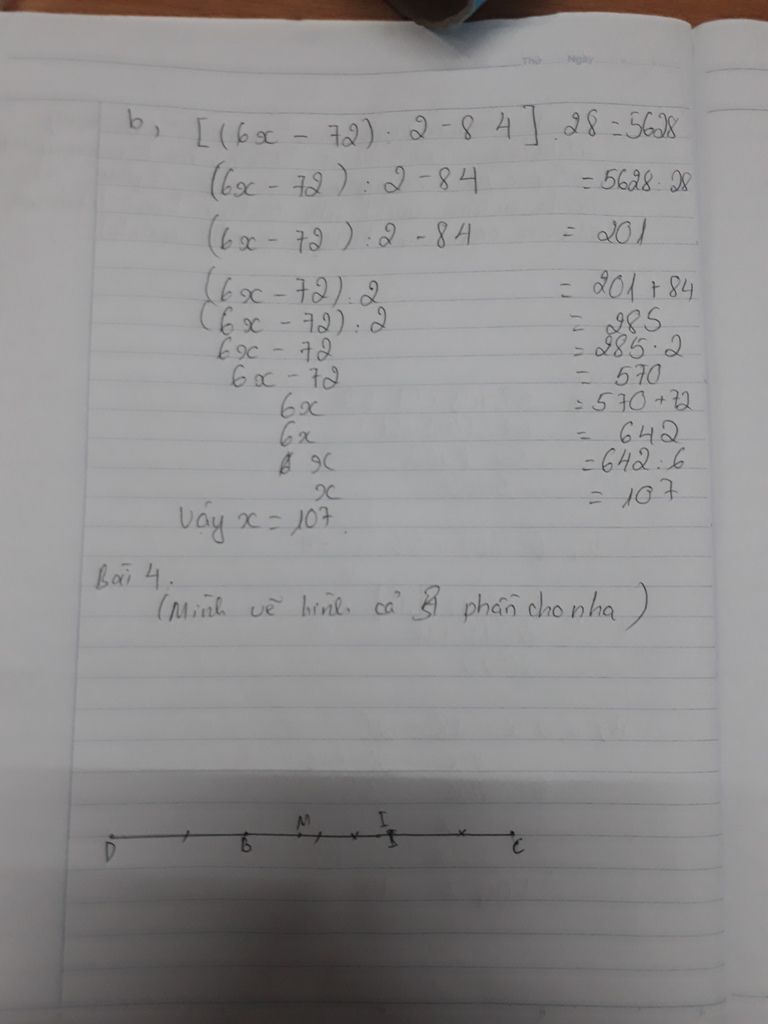 Thứ Ngày
b, [(6x - 72) : 2 - 84] . 28 = 5628
(6x - 72) : 2 - 84 = 5628 : 28
(6x - 72) : 2 - 84 = 201
(6x - 72) : 2 = 201 + 84
(6x - 72) : 2 = 285
6x - 72 = 285 . 2
6x - 72 = 570
6x = 570 + 72
6x = 642
x = 642 : 6
x = 107
Vậy x = 107.
Bài 4.
(Mình vẽ hình cả phần cho nha)
M I
D B I C